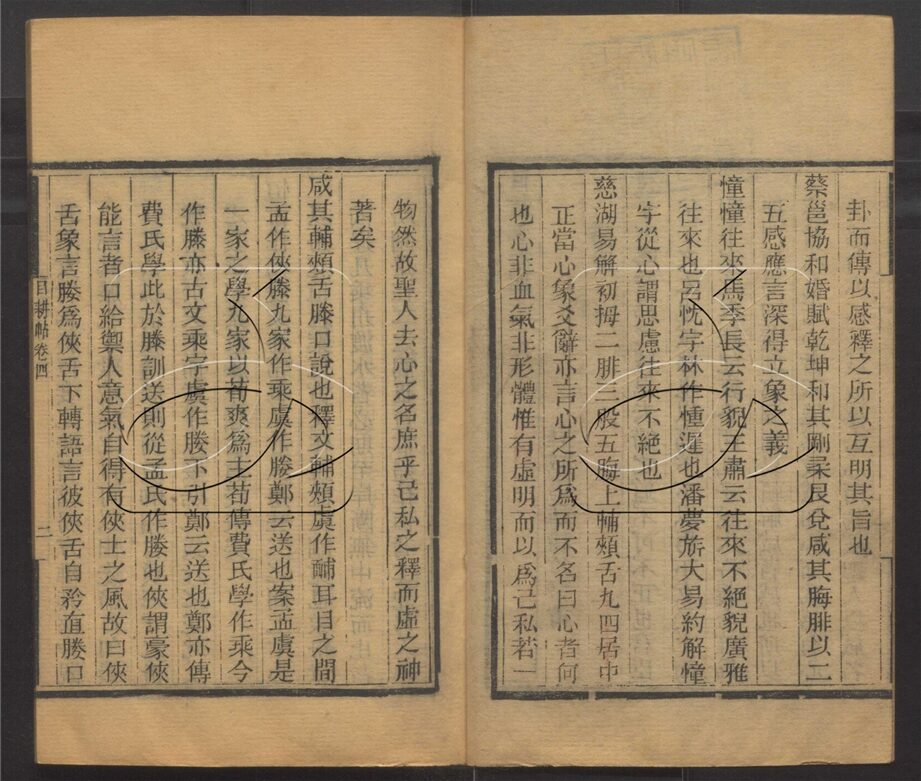 卦而傳以感釋之所以互明其旨也
蔡邕協和婚賦乾坤和其剛柔艮兌感其脢腓以二
五感應言深得立象之義
憧憧往來馬季長云行貌王肅云往來不絕貌廣雅
往來也呂忱字林作憧遲也潘夢旂大易約解憧
字從心謂思慮往來不絕也
慈湖易解初拇二腓三股五脢上輔頰舌九四居中
正當心象爻辭亦言心之所爲而不名曰心者何
也心非血氣非形體惟有虛明而以爲己私若一
物然故聖人去心之名庶乎己私之釋而虛之神
著矣
咸其輔頰舌滕口說也釋文輔頰虞作䩉耳目之間
孟作俠滕九家作乘虞作媵鄭云送也案孟虞是
一家之學九家以荀爽爲主荀傳費氏學作乘今
作滕亦古文乘字虞作媵下引鄭云送也鄭亦傳
費氏學此於滕訓送則從孟氏作媵也俠謂豪俠
能言者口給禦人意氣自得有俠士之風故曰俠
舌象言媵爲俠舌下轉語言彼俠舌自矜直媵口
目耕帖卷四
二